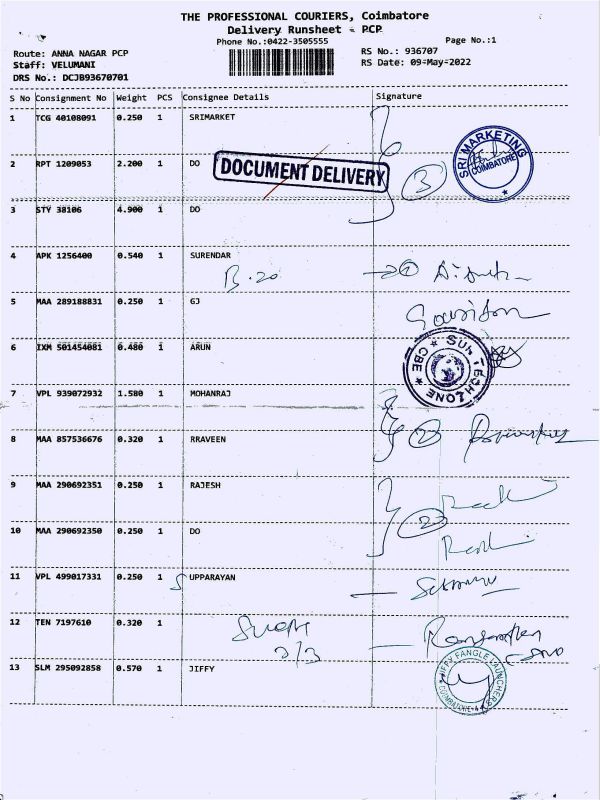 THE PROFESSIONAL COURIERS, Coimbatore
Delivery Runsheet - PCP
Phone No.:0422-3505555
Page No.:1
Route: ANNA NAGAR PCP
RS No.: 936707
Staff: VELUMANI
RS Date: 09-May-2022
DRS No.: DCJB93670701
S No Consignment No Weight PCS Consignee Details Signature
1 TCG 40108091 0.250 1 SRIMARKET
SRI MARKETING COIMBATORE
2 RPT 1209053 2.200 1 DO
DOCUMENT DELIVERY
3
3 STY 38106 4.900 1 DO
4 APK 1256400 0.540 1 SURENDAR
B.20
5 MAA 289188831 0.250 1 GJ
6 IXM 501454081 0.480 1 ARUN
CBE
7 VPL 939072932 1.580 1 MOHANRAJ
8 MAA 857536676 0.320 1 RRAVEEN
2
9 MAA 290692351 0.250 1 RAJESH
2
10 MAA 290692350 0.250 1 DO
11 VPL 499017331 0.250 1 UPPARAYAN
12 TEN 7197610 0.320 1
13 SLM 295092858 0.570 1 JIFFY
JIFFY FANGLE LAUNCHERS
COIMBATORE-4